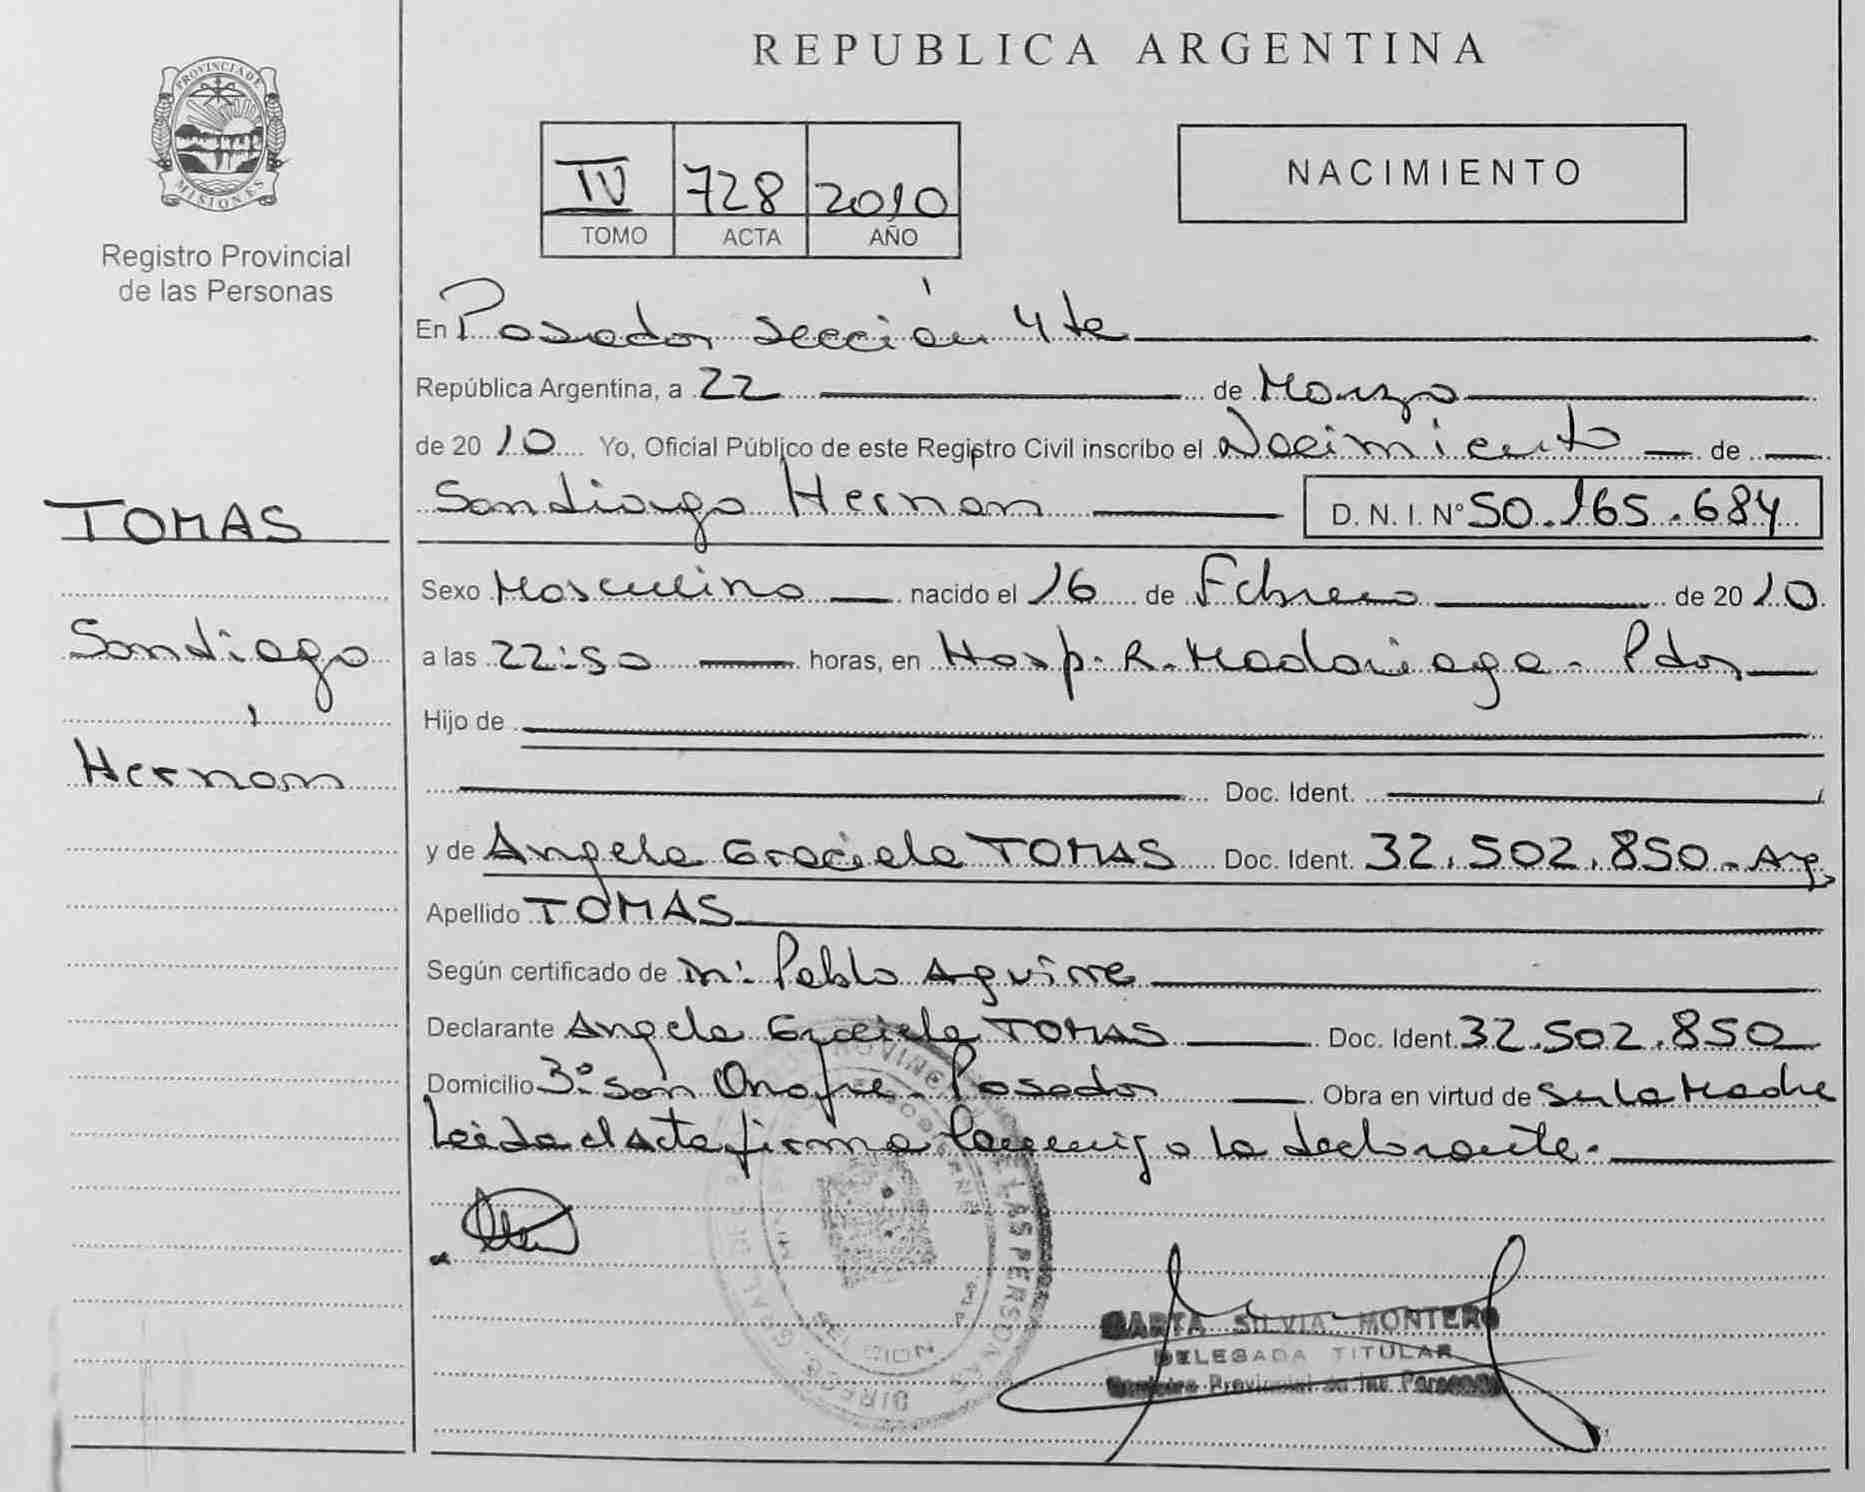 REPUBLICA ARGENTINA
PROVINCIA DE
MISIONES
Registro Provincial
de las Personas
IV 728 2010
TOMO ACTA AÑO
NACIMIENTO
En Posadas sección 4ta
República Argentina, a 22 de Marzo
de 2010 Yo, Oficial Público de este Registro Civil inscribo el Nacimiento de
Santiago Hernan D. N. I. N° 50.165.684
TOMAS
Santiago
Hernán
Sexo Masculino nacido el 16 de Febrero de 2010
a las 22:50 horas, en Hosp. R. Madariaga - Pdas
Hijo de
Doc. Ident.
y de Angela Graciela TOMAS Doc. Ident. 32.502.850 - Arg.
Apellido TOMAS
Según certificado de Pablo Aguirre
Declarante Angela Graciela TOMAS Doc. Ident. 32.502.850
Domicilio San Onofre - Posadas Obra en virtud de ser la Madre
Leida el Acta firma conmigo la declarante.
LAS PERSONAS
SILVIA MONTERO
DELEGADA TITULAR
Registro Provincial de las Personas